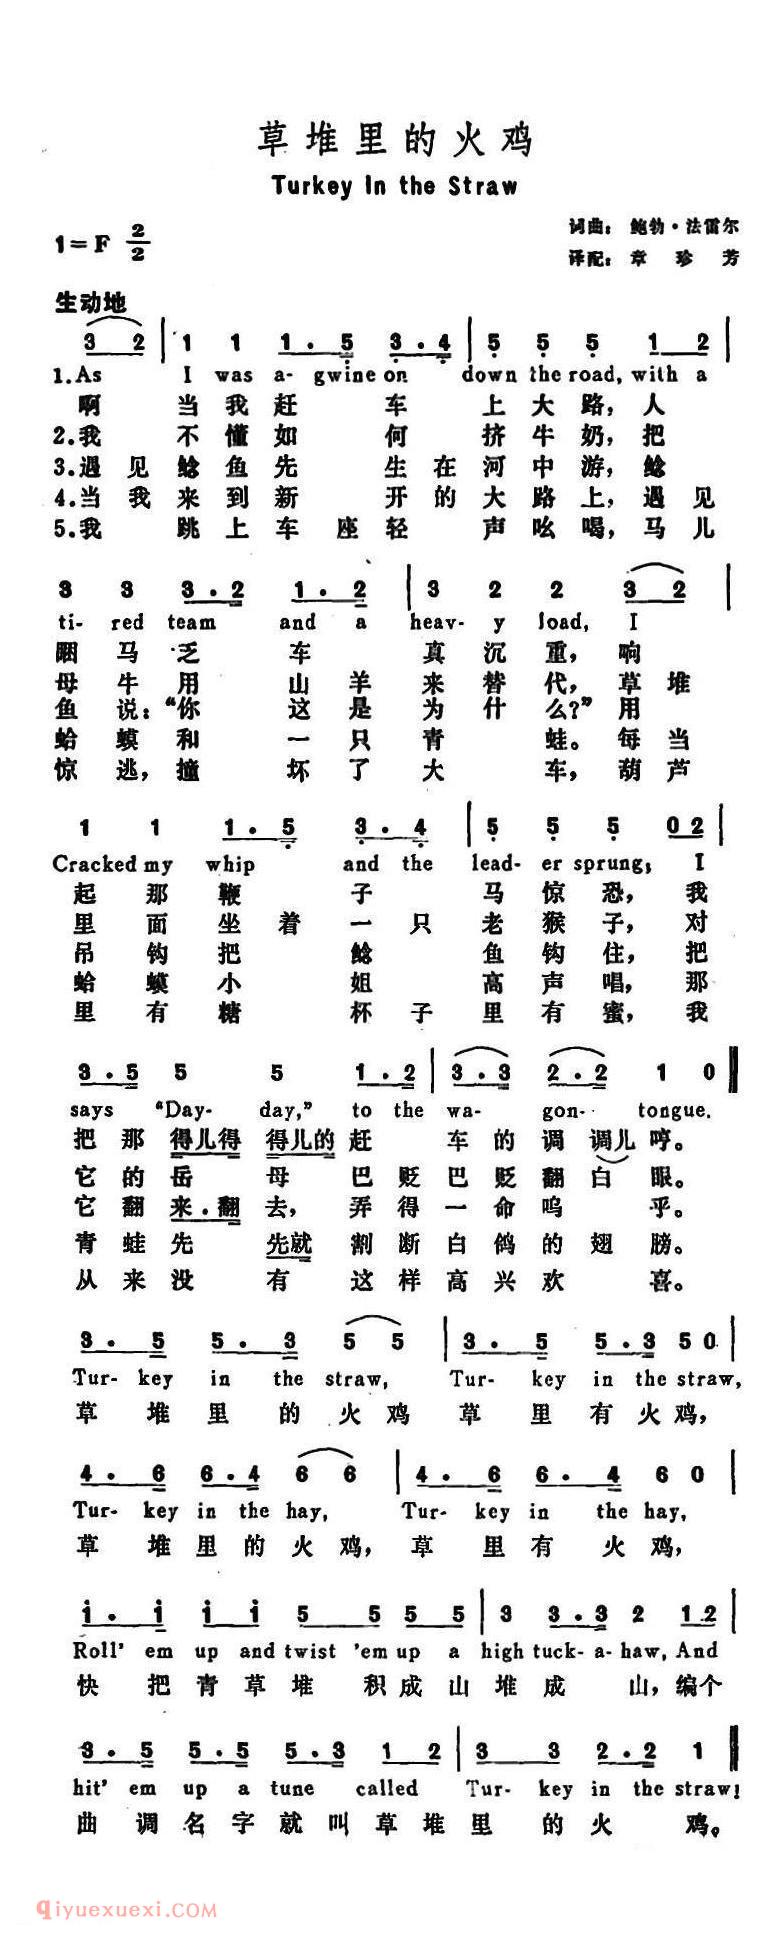 草堆里的火鸡
Turkey In the Straw
词曲：鲍勃·法雷尔
1=F 2/2
译配：章珍芳
生动地
3 2 | 1 1 1·5 3·4 | 5 5 5 1 2 |
1.As I was a-gwine on down the road, with a
啊 当我赶 车 上大路，人
2.我 不懂如 何 挤牛奶，把
3.遇见鲶鱼先 生在河中游，鲶
4.当我来到新 开的大路上，遇见
5.我 跳上车座轻 声吆喝，马儿
3 3 3·2 1·2 | 3 2 2 3 2 |
ti-red team and a heav-y load, I
睏马乏 车 真沉重，响
母牛用 山羊来替代，草堆
鱼说：“你 这是为什么？”用
蛤蟆和 一只青 蛙。每当
惊逃，撞 坏了大 车，葫芦
1 1 1·5 3·4 | 5 5 5 0 2 |
Cracked my whip and the lead-er sprung, I
起那鞭 子 马惊恐，我
里面坐着一只老猴子，对
吊钩把 鲶 鱼钩住，把
蛤蟆小 姐 高声唱，那
里有糖 杯子里有蜜，我
3·5 5 5 1·2 | 3·3 2·2 1 0 ‖
says “Day-day,” to the wa-gon-tongue.
把那得儿得得儿的赶 车的调调儿哼。
它的岳 母 巴贬巴贬翻白眼。
它翻来·翻去，弄得一命呜 乎。
青蛙先 先就割断白鸽的翅膀。
从来没 有 这样高兴欢 喜。
3·5 5·3 5 5 | 3·5 5·3 5 0 |
Tur-key in the straw, Tur-key in the straw,
草堆里的火鸡草里有火鸡，
4·6 6·4 6 6 | 4·6 6·4 6 0 |
Tur-key in the hay, Tur-key in the hay,
草堆里的火鸡，草里有火鸡，
1·1 1 1 5 5 5 5 | 3 3·3 2 1 2 |
Roll' em up and twist 'em up a high tuck-a-haw, And
快把青草堆 积成山堆成 山，编个
3·5 5·5 5·3 1 2 | 3 3 2·2 1 ‖
hit' em up a tune called Tur-key in the straw!
曲调名字就叫草堆里的火 鸡。
qiyuexuexi.COM